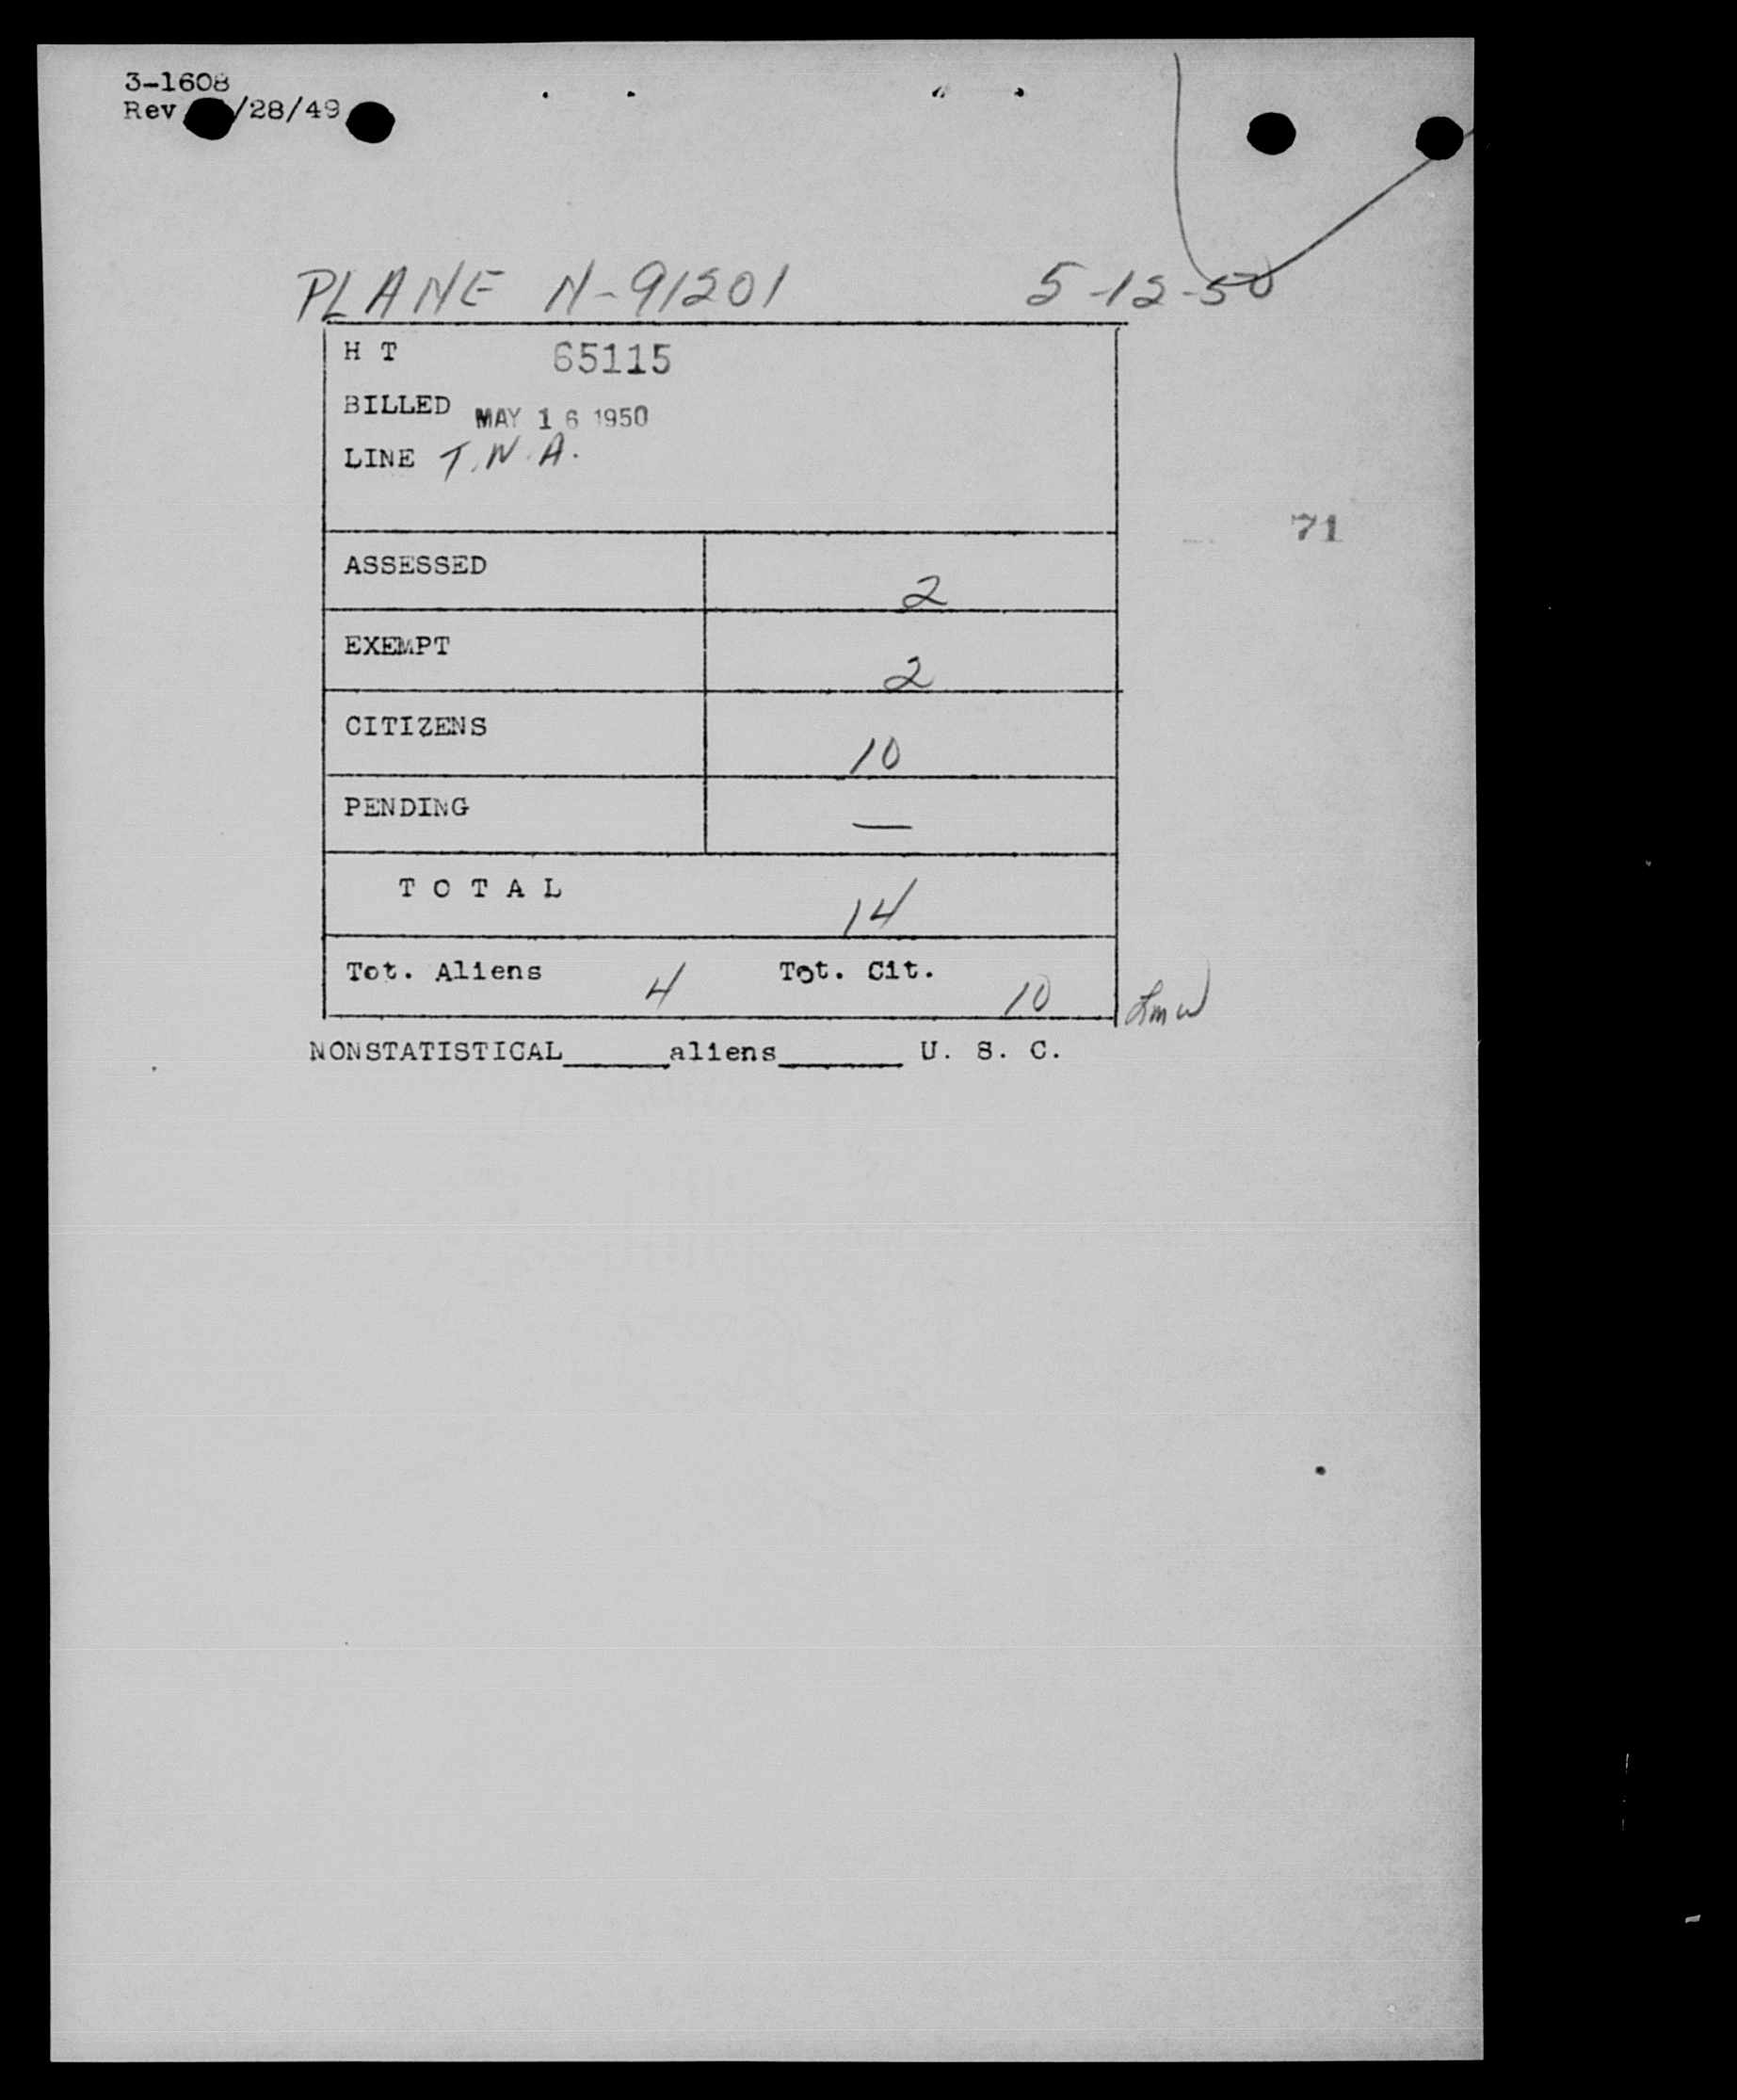 3-1608
Rev /28/49
PLANE N-91201 5-12-50
H T 65115
BILLED MAY 16 1950
LINE T.N.A.
71
ASSESSED 2
EXEMPT 2
CITIZENS 10
PENDING —
T O T A L 14
Tot. Aliens 4 Tot. Cit. 10
NONSTATISTICAL______aliens_______ U. S. C.